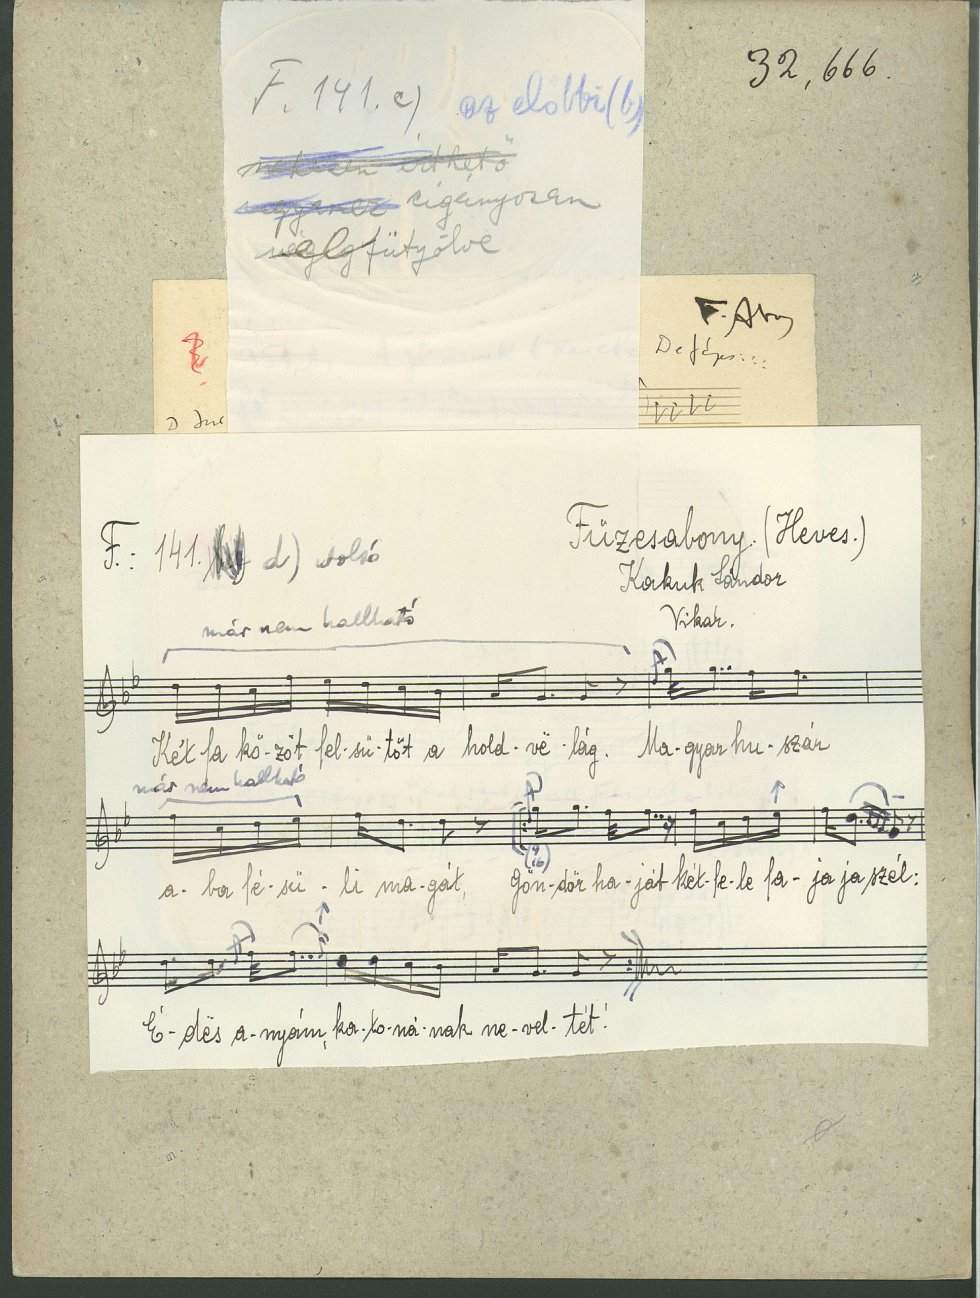 32,666.
F. 141. c) az előbbi (b)
nehezen édhető
ugyanez cigányosan
végig fütyölve
F. Abo
D
F.: 141. d) utolsó
Füzesabony. (Heves.)
Kakuk Sándor
Vikár.
már nem hallható
Két fa kö-zöt fel-sü-töt a hold-vë-lág. Ma-gyar hu-szár
már nem hallható
a-ba fé-sü-li ma-gát, gön-dör ha-ját két-fe-le fa-ja ja szél:
É-dës a-nyám, ka-to-ná-nak ne-vel-tét!